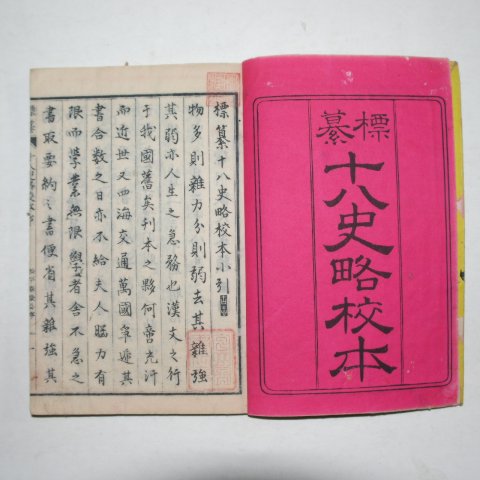 標纂
十八史略校本
標纂十八史略校本小引
物多則雜力分則弱去其雜強
其弱亦人生之急務也漢文之行
于我國舊矣刊本之夥何啻充汗
而近世又四海交通萬國章遞其
書合數之日亦不給夫人腦力有
限而學業無限學者舍不急之
書取要約之書便省其雜強其